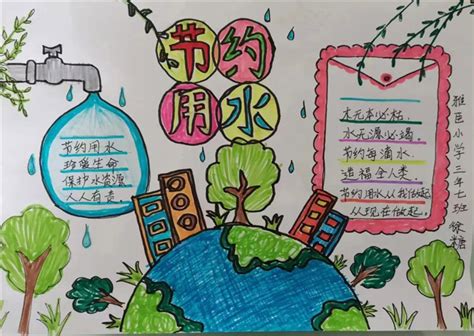 节约
用水
节约用水
珍爱生命
保护水资源
人人有责
木无本必枯.
水无源必竭.
节约每滴水.
造福全人类.
节约用水从我做起.
从现在做起.
雅臣小学三年七班